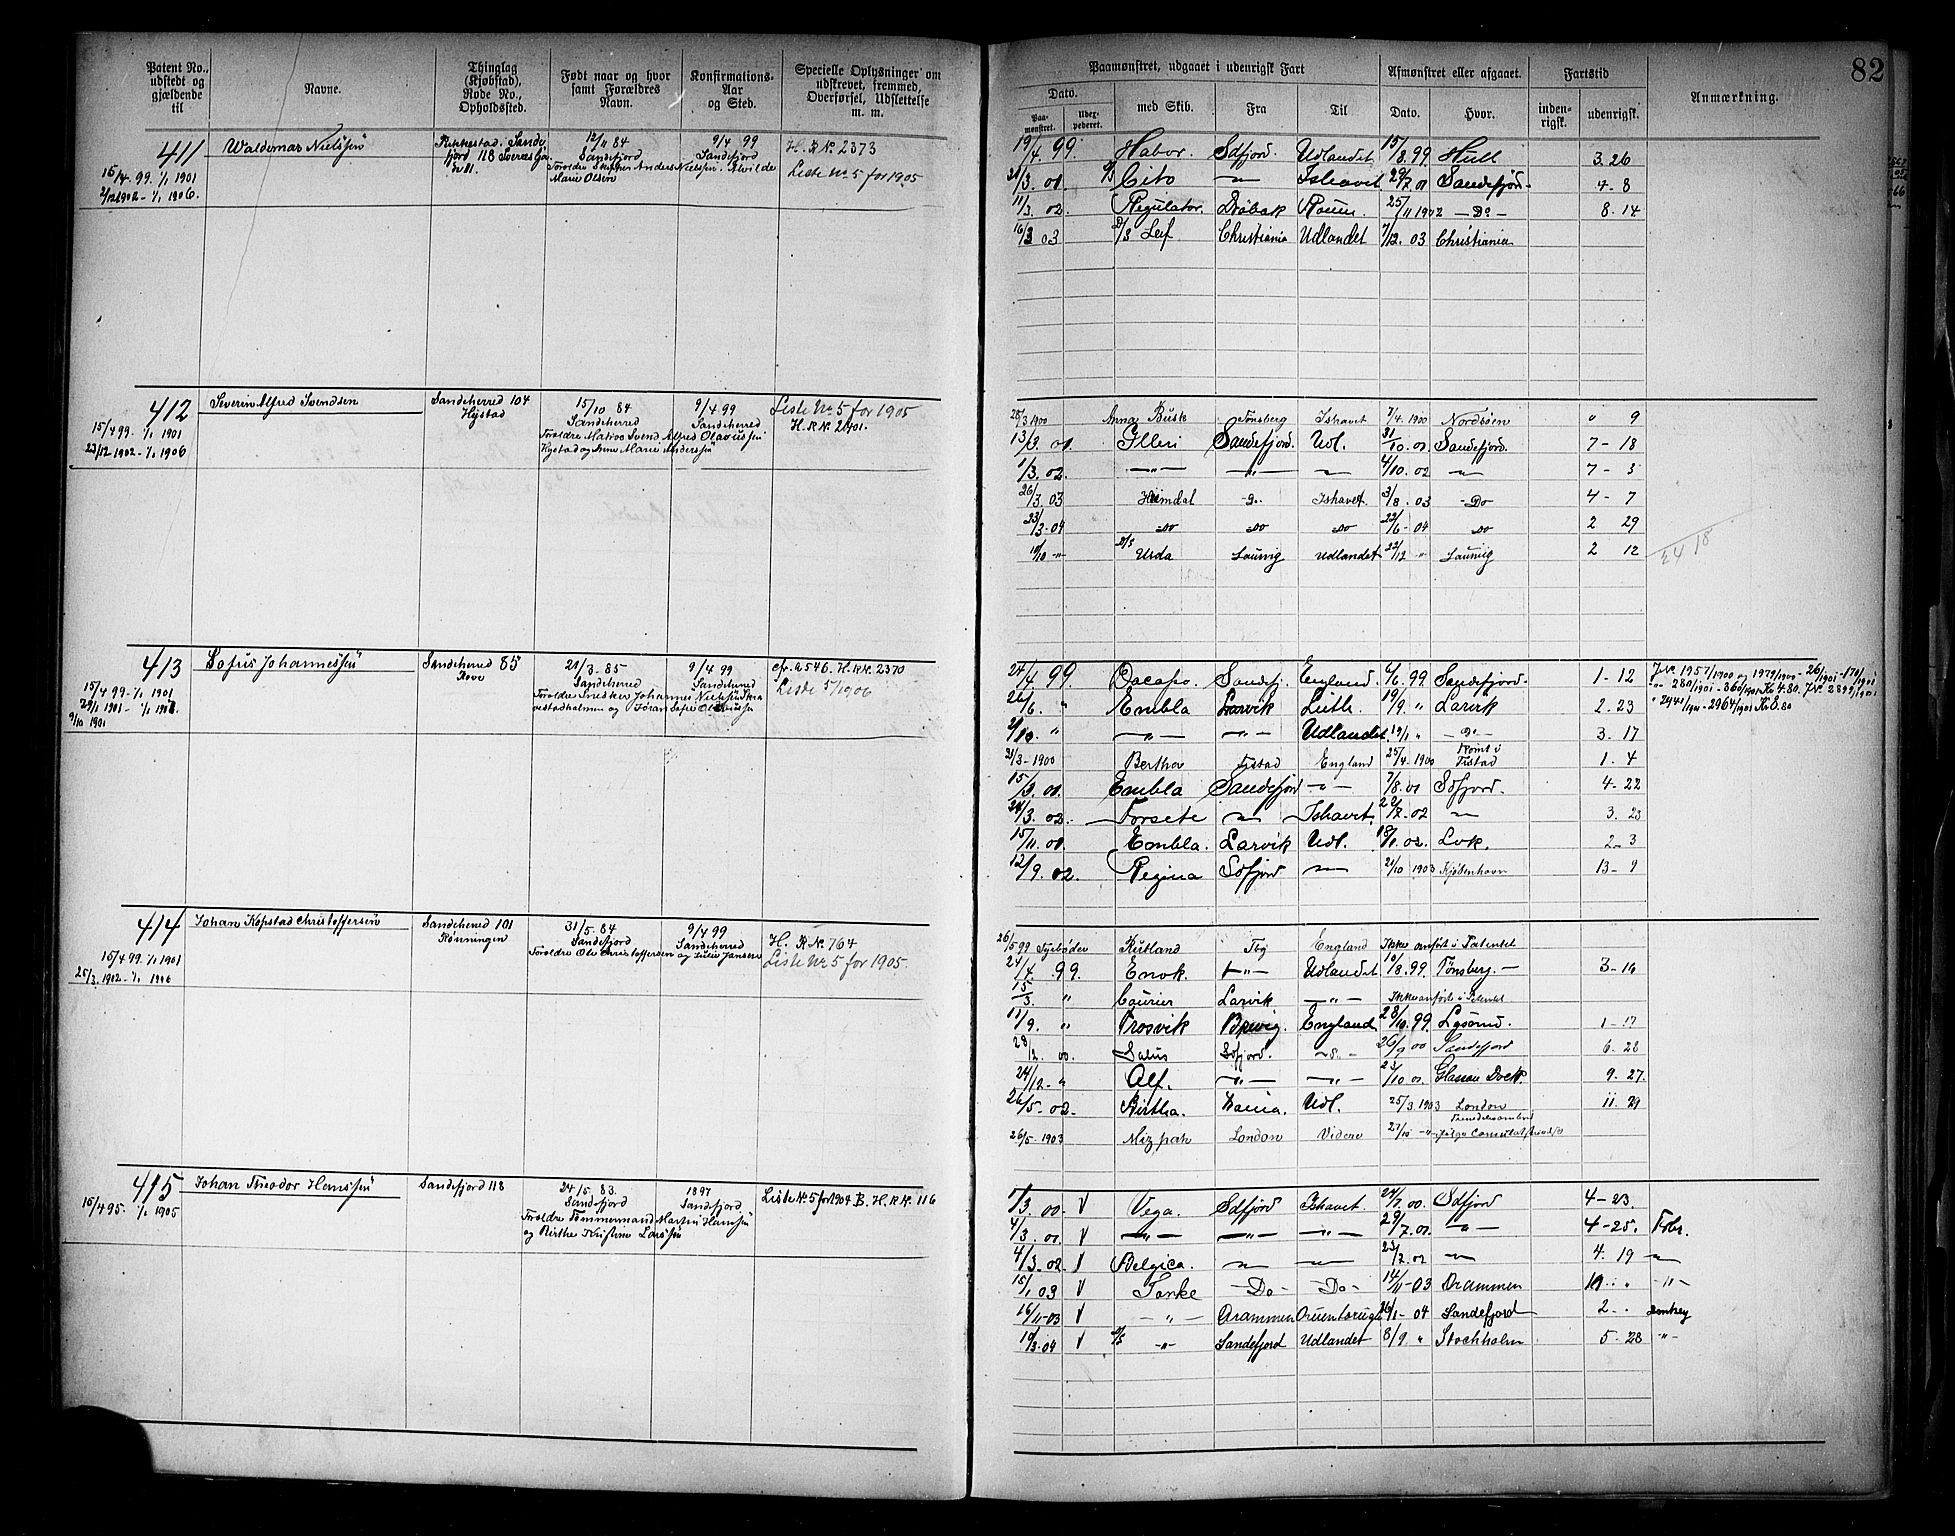 82
Patent No., udstedt og gjældende til
Navne.
Thinglag (Kjøbstad), Rode No., Opholdssted.
Født naar og hvor samt Forældres Navn.
Konfirmations- Aar og Sted.
Specielle Oplysninger om udskrevet, fremmed, Overførsel, Udslettelse m. m.
Paamønstret, udgaaet i udenrigsk Fart
Afmønstret eller afgaaet.
Fartstid
Anmærkning.
Dato.
Paamønstret.
Udexpederet.
med Skib.
Fra
Til
Dato.
Hvor.
indenrigsk.
udenrigsk.
411 Waldemar Nielsen
15/4. 99. 1/1 1901
2/12 1902 - 1/1 1906.
12/11 84 Sandefjord
Marie Olsen
9/4 99 Sandefjord
H. R. N. 2373
Liste No. 5 for 1905
19/4 99. Habor. Sdfjord. Udlandet 15/8.99. Hull 3. 26
21/3. 01. Cito — " — Ishavet 29/7 01 Sandefjord 4 - 8
11/3. 02. Regulator. Drøbak 25/11 1902 — Do — 8. 14
16/3 03 D/S Leif. Christiania Udlandet 7/12. 03 Christiania
412 Severin Alfred Svendsen
15/4 99. 1/1 1901
23/12 1902 - 1/1 1906
Sandeherred 104 Hystad
15/10 84 Sandeherred
Forældre Matros Svend Alfred Olavussen
Hystad og Anne Marie Andersen
9/4 99 Sandeherred
Liste No. 5 for 1905
H. R. N. 2401.
28/3 1900 Anna Busk Tønsberg Ishavet 7/4. 1900 Nordsøen " 9
13/3. 01. Illeri Sandefjord. Udl. 31/10. 01 Sandefjord. 7 - 18
1/3. 02. — " — — " — — " — 4/10. 02 — " —
26/3. 03 Heimdal Do. Ishavet 3/8. 03 - Do 4 - 7
23/3. 04 Do Do Do 22/6 - 04 Do 2 29
10/10 - " - D/S Usda Laurvig Udlandet 22/12 " Laurvig 2 12
24 18
413 Sofus Johannessen
15/4 99 - 1/1 1901
29/1 1901 -
9/10 1901
Sandeherred 85
21/3. 85 Sandeherred
Forældre Snekker Johannes Nielsen
9/4 99 Sandeherred
cfr. 2546. H. R. N. 2370
Liste 5/1906
24/4 99 Dacapo. Sandefj. England. 6/6. 99. Sandefjord. 1 - 12
26/6. " Embla Larvik Leith. 19/9. " Larvik 2. 23
2/10. " — " — — " — Udlandet. 19/1 " — Do — 3. 17
21/3 - 1900 Bertha Tistad England 25/4. 1900 Tistad 1. 4
15/3. 01. Embla Sandefjord — " — 7/8. 01 Sdfjord. 4 - 22
24/3. 02. Forsete — " — Ishavet. 22/7. 02 — " — 3. 23
15/11. 01. Embla. Larvik Udl. 18/1. 02. Lvk. 2 - 3
12/9. 02. Regina Sdfjord — " — 21/10 1903 Kjøbenhavn 13 - 9
J.No. 1957/1900 og 1979/1900 - 26/1901 - 170/1901
" 280/1901 - 360/1901 Kr 4.80. J.No. 2899/1901
" 2940/1901 - 2964/1901 Kr 8.80
414 Johan Kopstad Christoffersen
15/4 99. 1/1 1901
25/3. 1902 - 1/1 1906
Sandeherred 101 Rønningen
31/5. 84 Sandefjord
Forældre Ole Christoffersen og Julie Jansen
9/4 99 Sandeherred
H. R. N. 764
Liste No. 5 for 1905.
26/5 99 Fyrbøder Rutland Tbg England Ikke anført i Patentet
24/4. 99. Enok. — " — Udlandet 10/8. 99. Tønsberg. — 3 - 16
15/3. " Courier Larvik — " — Ikke anført i Patentet
11/9. " Frosvik Brevig. England 28/10. 99. Lysand. 1 - 17
28/2. 00. Salus Sdfjord. 26/9 00 Sandefjord 6. 28
24/12 - " Alf. — " — — " — 23/10 01. Glasson Dock. 9. 27.
26/5 - 02. Birtha. Udl. 25/3. 1903 London 11. 29
26/5 - 1903 Mizpah London Videre 27/10 - " ifølge
415 Johan Theodor Hanssen
15/4 95. 1/1 1905
Sandefjord 118
24/5. 83. Sandefjord
Forældre Tømmermand Martin Hansen
og Birthe Kristine Larsen
1897 Sandefjord
Liste No. 5 for 1904 B. H. R. No. 116
1/3. 00. V Vega. Sdfjord Ishavet. 24/7. 00. Sdfjord 4 - 23.
4/3. 01. V — " — — " — — " — 29/7. 01. — " — 4 - 25. Fobr.
4/3 - 02. V Belgica. — " — — " — 23/7. 02 — " — 4. 19 — " —
15/1 03 V Tanke — Do — — Do — 14/11 - 03 Drammen 10. " — " —
16/11 - 03 V — " — Drammen 26/1 - 04 Sandefjord 2 - .
10/3. 04 V D/S — " — Sandefjord Udlandet 8/9. " Stockholm 5 - 28 — " —